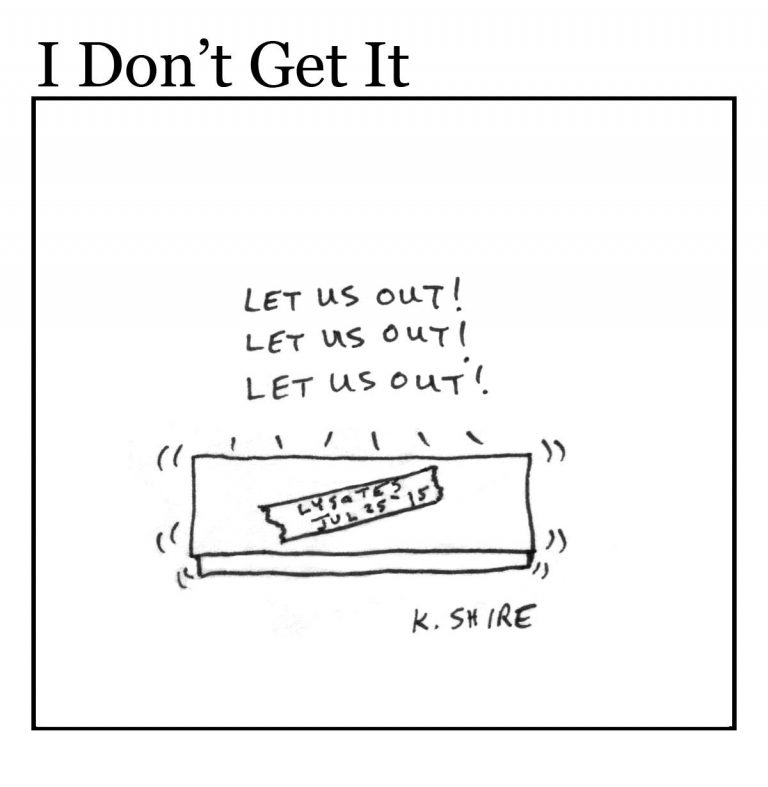 I Don't Get It
LET US OUT!
LET US OUT!
LET US OUT!
LYSATES
JUL 25-15
K. SHIRE